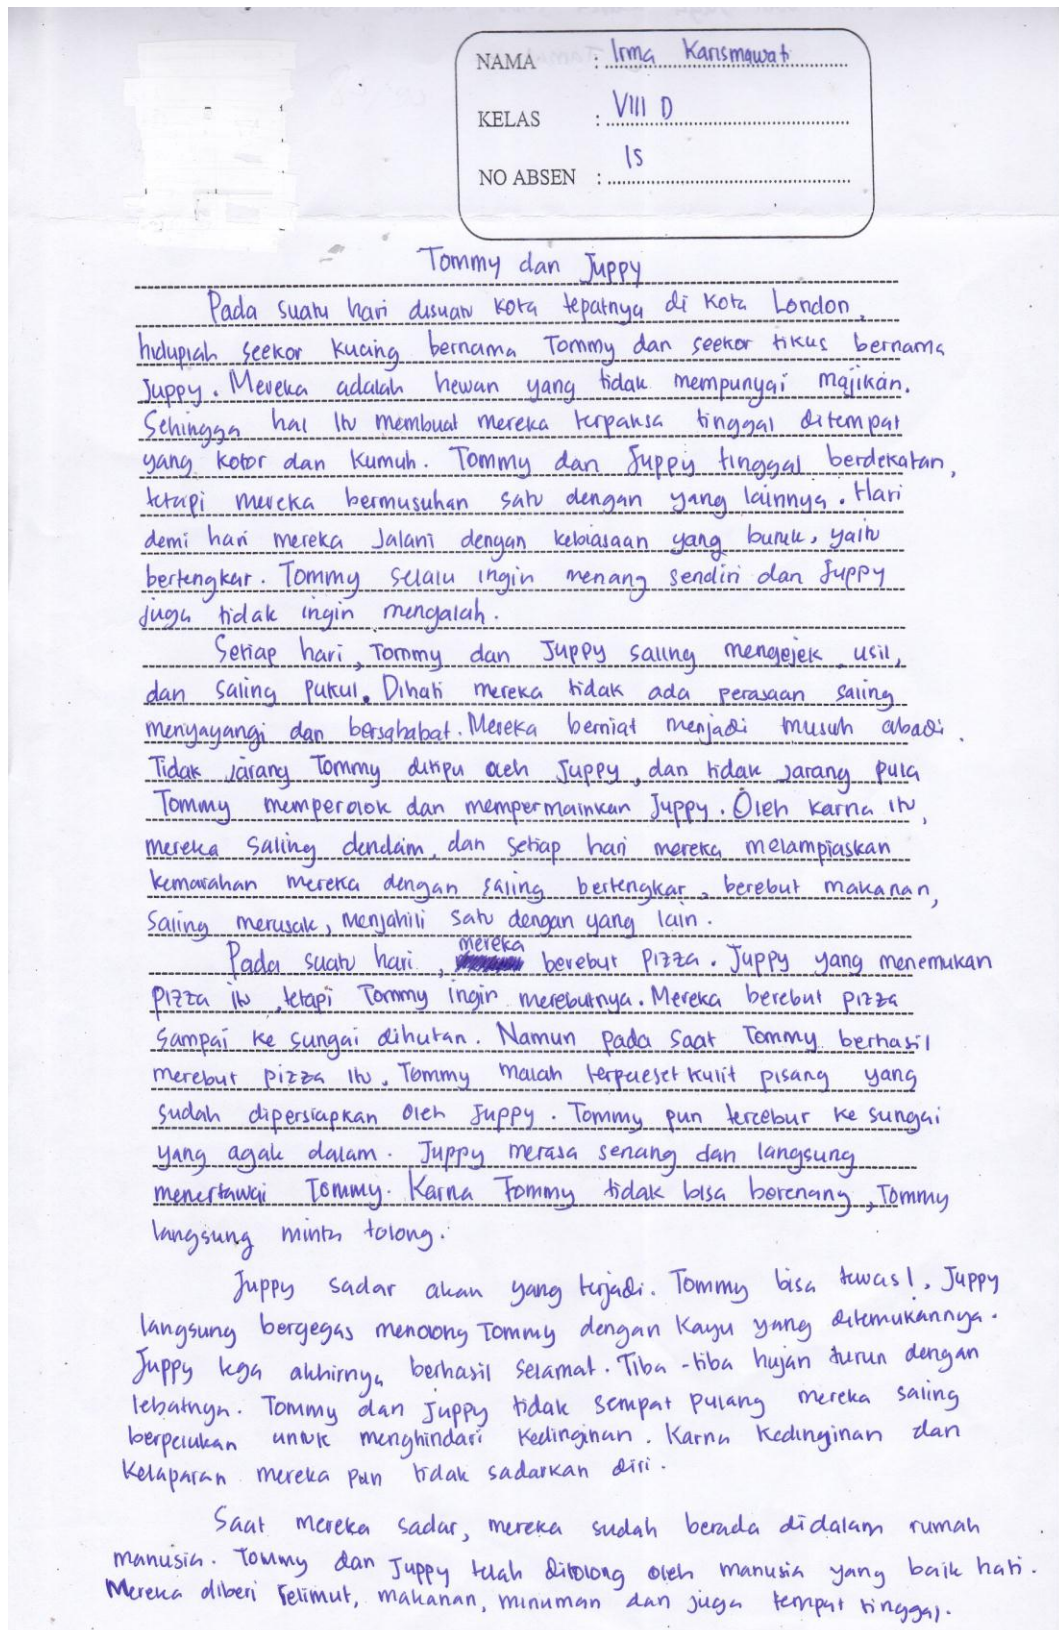 NAMA : Irma Karismawati
KELAS : VIII D
NO ABSEN : 15
Tommy dan Juppy
Pada suatu hari disuatu kota tepatnya di Kota London,
hiduplah seekor kucing bernama Tommy dan seekor tikus bernama
Juppy. Mereka adalah hewan yang tidak mempunyai majikan.
Sehingga hal itu membuat mereka terpaksa tinggal ditempat
yang kotor dan kumuh. Tommy dan Juppy tinggal berdekatan,
tetapi mereka bermusuhan satu dengan yang lainnya. Hari
demi hari mereka Jalani dengan kebiasaan yang buruk, yaitu
bertengkar. Tommy selalu ingin menang sendiri dan Juppy
juga tidak ingin mengalah.
Setiap hari, Tommy dan Juppy saling mengejek, usil,
dan saling pukul. Dihati mereka tidak ada perasaan saling
menyayangi dan bersahabat. Mereka berniat menjadi musuh abadi.
Tidak jarang Tommy ditipu oleh Juppy, dan tidak jarang pula
Tommy memperolok dan mempermainkan Juppy. Oleh karna itu,
mereka saling dendam, dan setiap hari mereka melampiaskan
kemarahan mereka dengan saling bertengkar, berebut makanan,
saling merusak, menjahili satu dengan yang lain.
Pada suatu hari, mereka berebut pizza. Juppy yang menemukan
pizza itu, tetapi Tommy ingin merebutnya. Mereka berebut pizza
sampai ke sungai dihutan. Namun pada saat Tommy berhasil
merebut pizza itu, Tommy malah terpeleset kulit pisang yang
sudah dipersiapkan oleh Juppy. Tommy pun tercebur ke sungai
yang agak dalam. Juppy merasa senang dan langsung
menertawai Tommy. Karna Tommy tidak bisa berenang, Tommy
langsung minta tolong.
Juppy sadar akan yang terjadi. Tommy bisa tewas!. Juppy
langsung bergegas menolong Tommy dengan kayu yang ditemukannya.
Juppy lega akhirnya berhasil selamat. Tiba-tiba hujan turun dengan
lebatnya. Tommy dan Juppy tidak sempat pulang mereka saling
berpelukan untuk menghindari kedinginan. Karna kedinginan dan
kelaparan mereka pun tidak sadarkan diri.
Saat mereka sadar, mereka sudah berada didalam rumah
manusia. Tommy dan Juppy telah ditolong oleh manusia yang baik hati.
Mereka diberi selimut, makanan, minuman dan juga tempat tinggal.